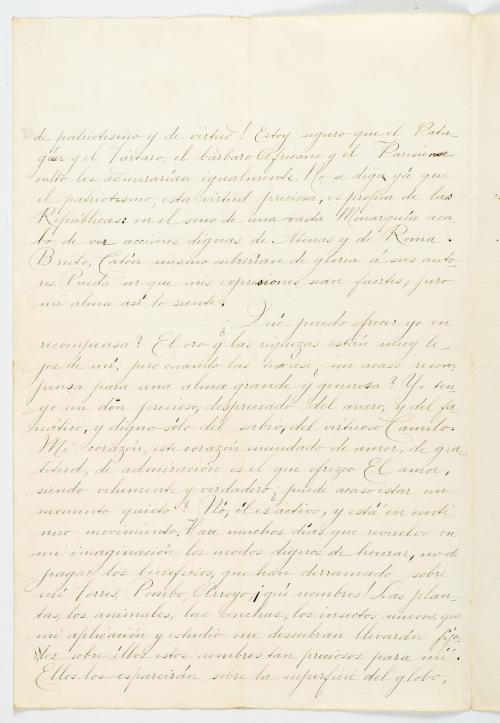 de patriotismo y de virtud! Estoy seguro que el Pata-
gón y el Tártaro, el bárbaro Africano y el Parisiense
culto les admirarían igualmente. No se diga yá que
el patriotismo, esta virtud preciosa, es propia de las
Repúblicas: en el seno de una vasta Monarquía aca-
bo de ver acciones dignas de Atenas y de Roma.
Bruto, Catón mismo cubrirían de gloria á sus auto-
res. Pueda ser que mis expresiones sean fuertes; pero
mi alma así lo siente.
¿Qué puedo ofrecer yo en
recompensa? El oro y las riquezas están muy le-
jos de mí; pero cuando las tuviese, son acaso recom-
pensa para una alma grande y generosa? Yo ten-
go un dón precioso, despreciado del avaro, y del fa-
nático, y digno sólo del sabio, del virtuoso Camilo.
Mi corazón, este corazón inundado de amor, de gra-
titud, de admiración es el que ofrezco. El amor,
siendo vehemente y verdadero ¿puede acaso estar un
momento quieto? Nó, él es activo, y está en conti-
nuo movimiento. Hace muchos días que revuelvo en
mi imaginación los modos dignos de honrar, no de
pagar los beneficios, que han derramado sobre
mí Torres, Pombo, Arroyo, ¡qué nombres! Las plan-
tas, los animales, las conchas, los insectos nuevos, que
mi aplicación y estudio me descubran llevarán fija-
dos sobre éllos estos nombres tan preciosos para mí.
Ellos los esparcirán sobre la superficie del globo,